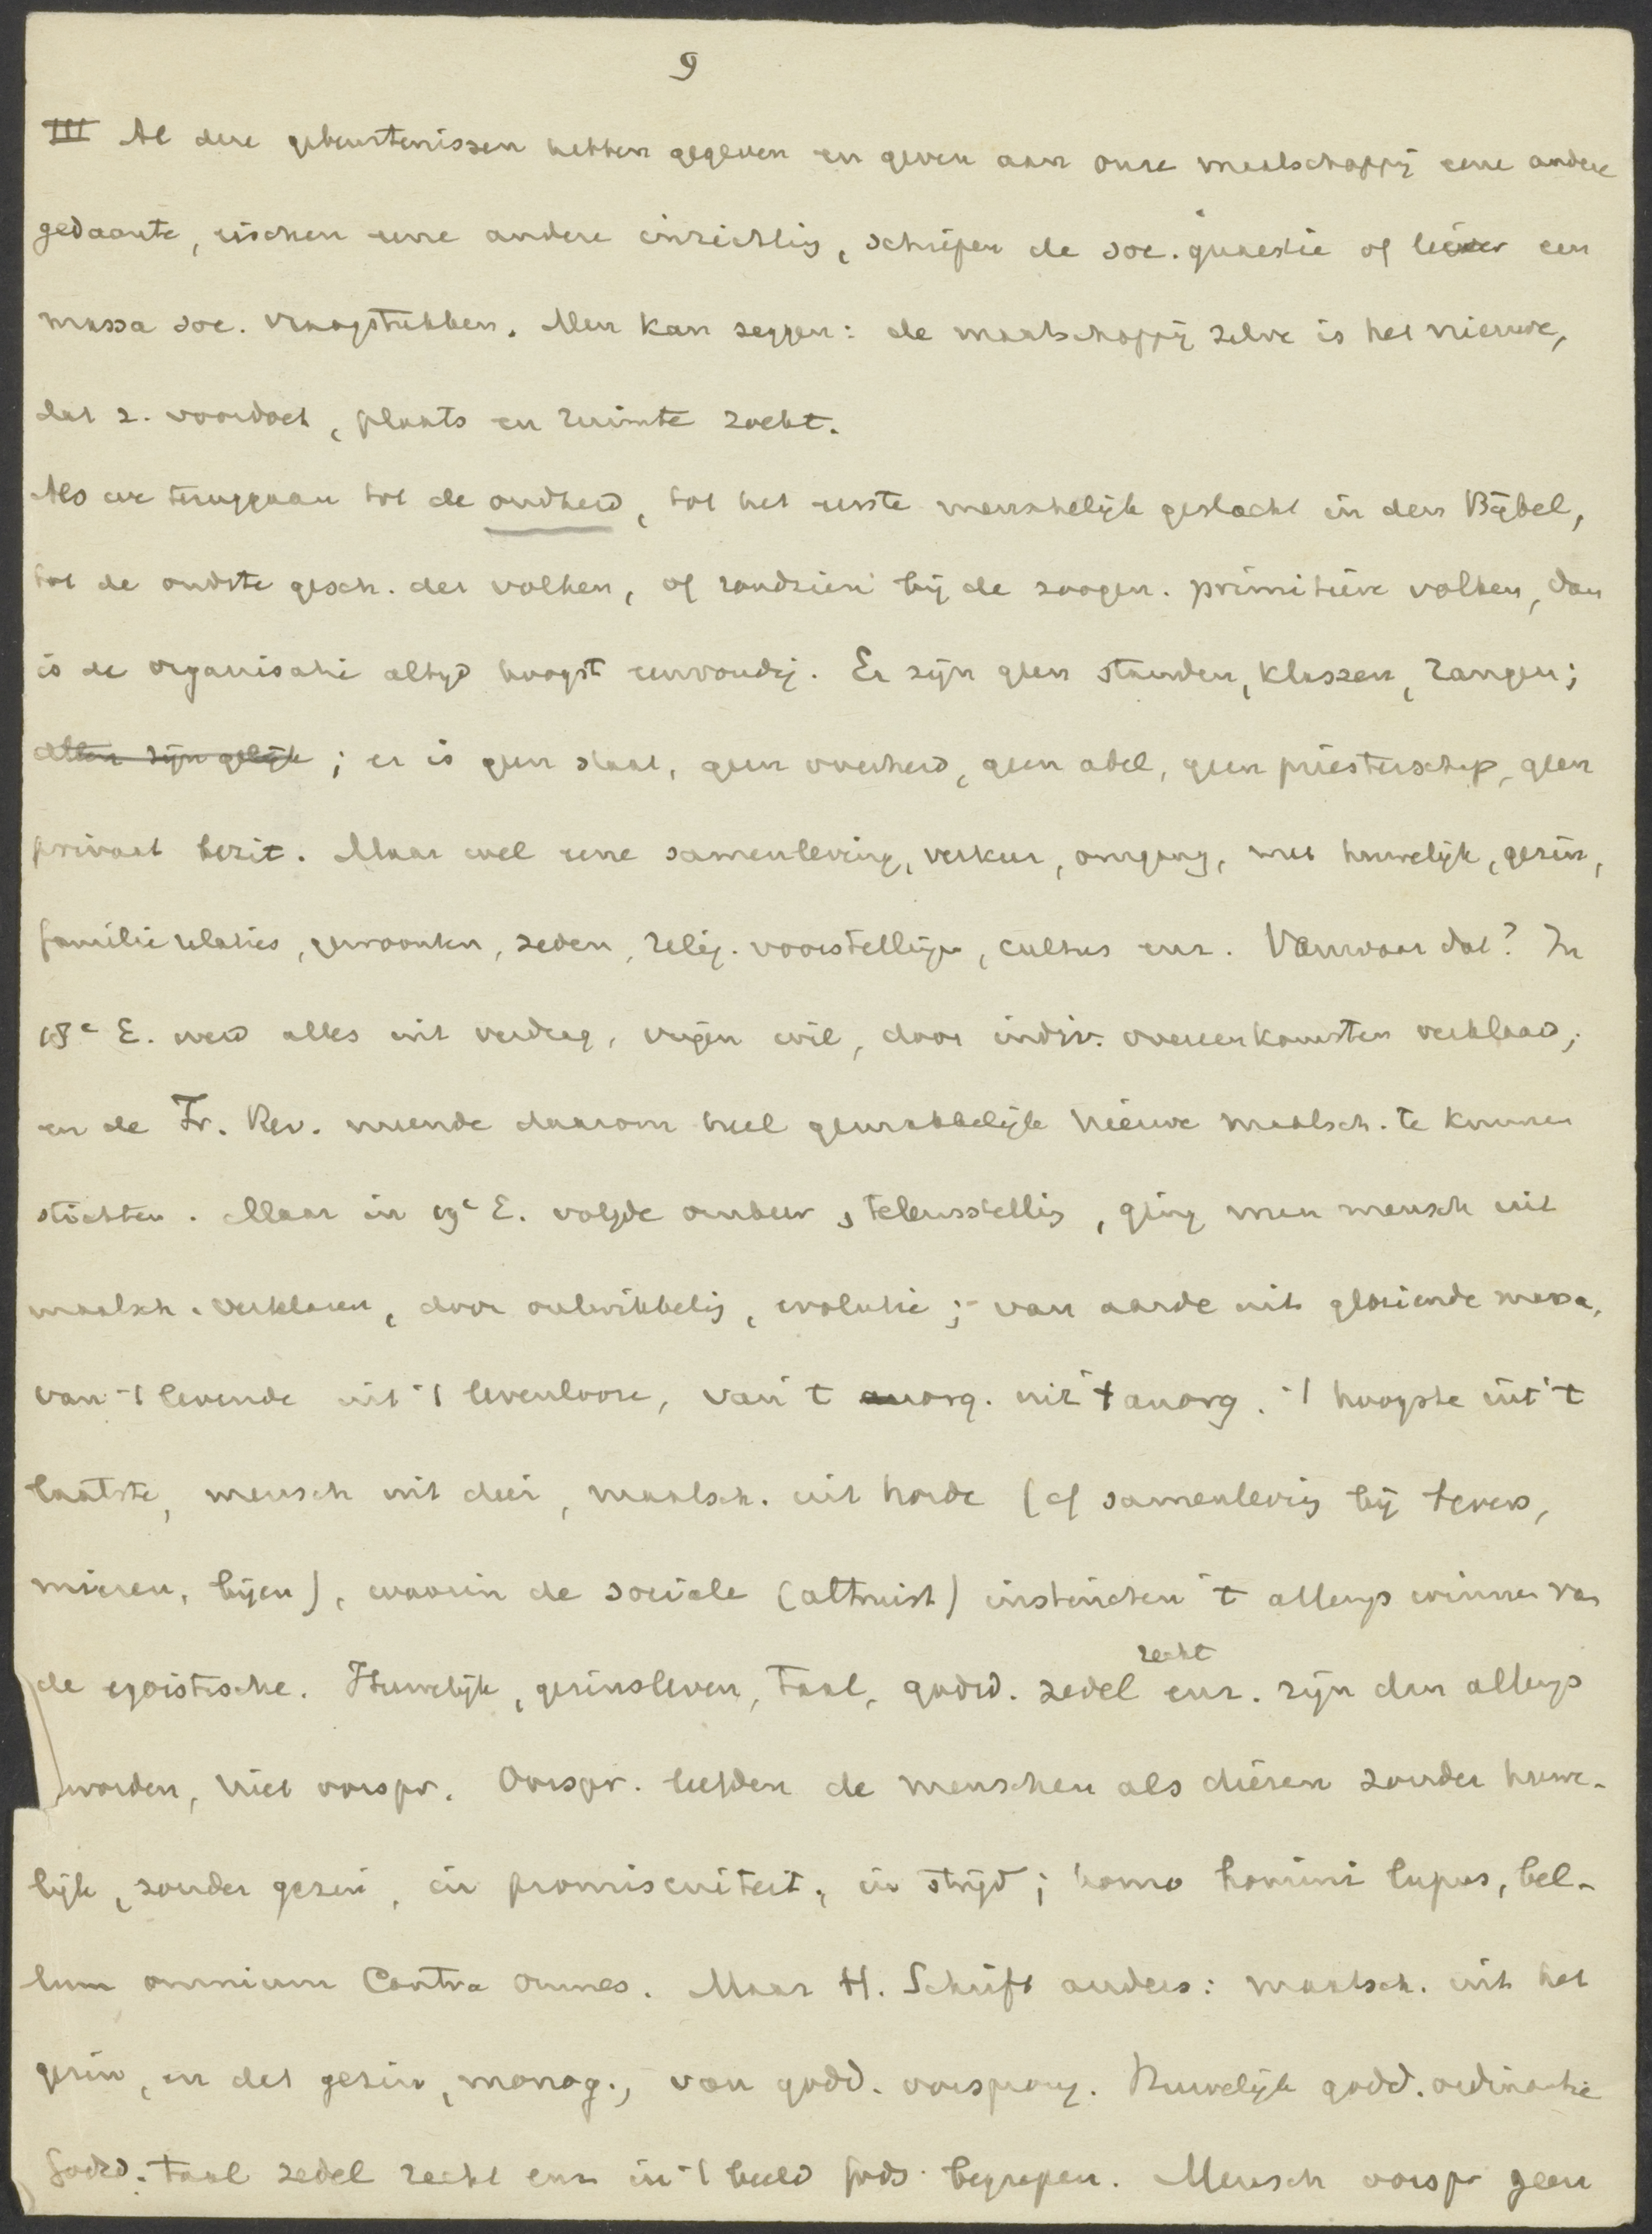 9
III Al deze gebeurtenissen hebben gegeven en geven aan onze maatschappij eene andere
gedaante, eischen eene andere inrichting, schiepen de soc. quaestie of liever een
massa soc. vraagstukken. Men kan zeggen: de maatschappij zelve is het nieuwe,
dat z. voordoet, plaats en ruimte zoekt.
Als we teruggaan tot de oudheid, tot het eerste menschelijk geslacht in den Bijbel,
tot de oudste gesch. der volken, of rondzien bij de zoogen. primitieve volken, dan
is de organisatie altijd hoogst eenvoudig. Er zijn geen standen, klassen, rangen;
allen zijn gelijk; er is geen staat, geen overheid, geen adel, geen priesterschap, geen
privaat bezit. Maar wel eene samenleving, verkeer, omgang, met huwelijk, gezin,
familie relaties, gewoonten, zeden, relig. voorstellingen, cultus enz. Vanwaar dat? In
18e E. werd alles uit verdrag, vrijen wil, door indiv. overeenkomsten verklaard;
en de Fr. Rev. meende daarom heel gemakkelijk nieuwe maatsch. te kunnen
stichten. Maar in 19e E. volgde ombeer, teleurstelling, ging men mensch uit
maatsch. verklaren, door ontwikkeling, evolutie; van aarde uit gloeiende massa,
van 't levende uit 't levenlooze, van 't org. uit 't anorg. 't hoogste uit 't
laatste, mensch uit dier, maatsch. uit horde (cf samenleving bij bevers,
mieren, bijen), waarin de sociale (altruist) instincten 't allengs winnen van
de egoistische. Huwelijk, gezinsleven, taal, godsd. zedel recht enz. zijn dan allengs
worden, niet oorspr. Oorspr. leefden de menschen als dieren zonder huwe-
lijk, zonder gezin, in promiscuiteit, in strijd; homo homini lupus, bel-
lum omnium contra omnes. Maar H. Schrift anders: maatsch. uit het
gezin, en dat gezin, monog., van godd. oorsprong. Huwelijk godd. ordinantie
Godsd. taal zedel recht enz in 't beeld Gods begrepen. Mensch oorspr geen